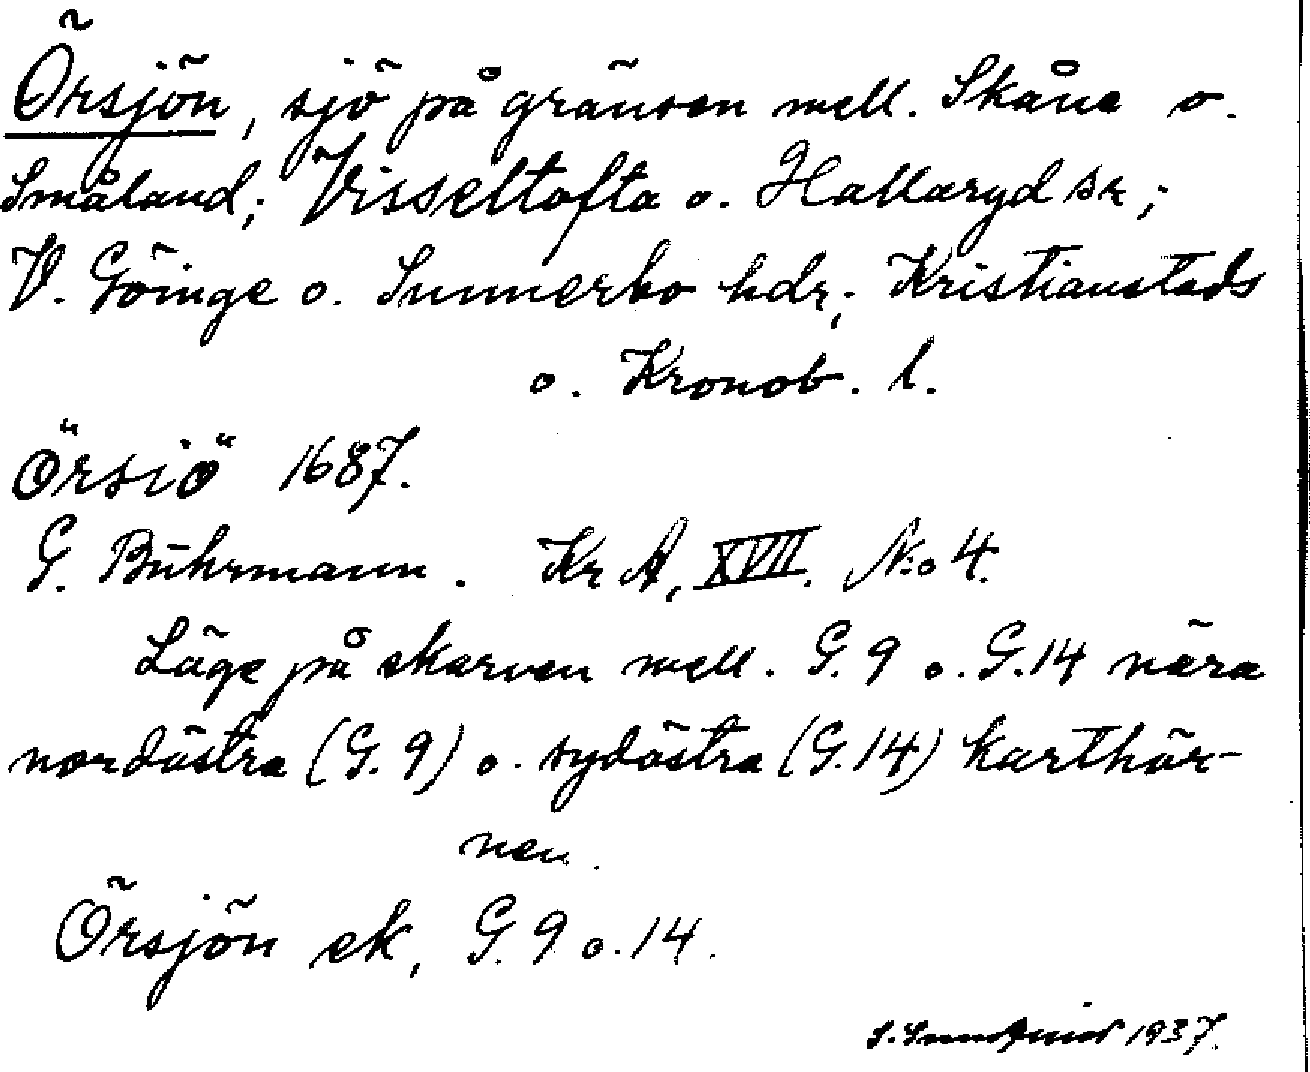 Örsjön, sjö på gränsen mell. Skåne o.
Småland; Visseltofta o. Hallaryd sr;
V. Göinge o. Sunnerbo hdr; Kristianstads
o. Kronob. l.
Örsiö 1687.
G. Buhrmann. Kr A, XVII. No 4.
Läge på skarven mell. G. 9 o. G. 14 nära
nordöstra (G. 9) o. sydöstra (G. 14) karthör-
nen.
Örsjön ek, G. 9 o. 14.
S. 1937.